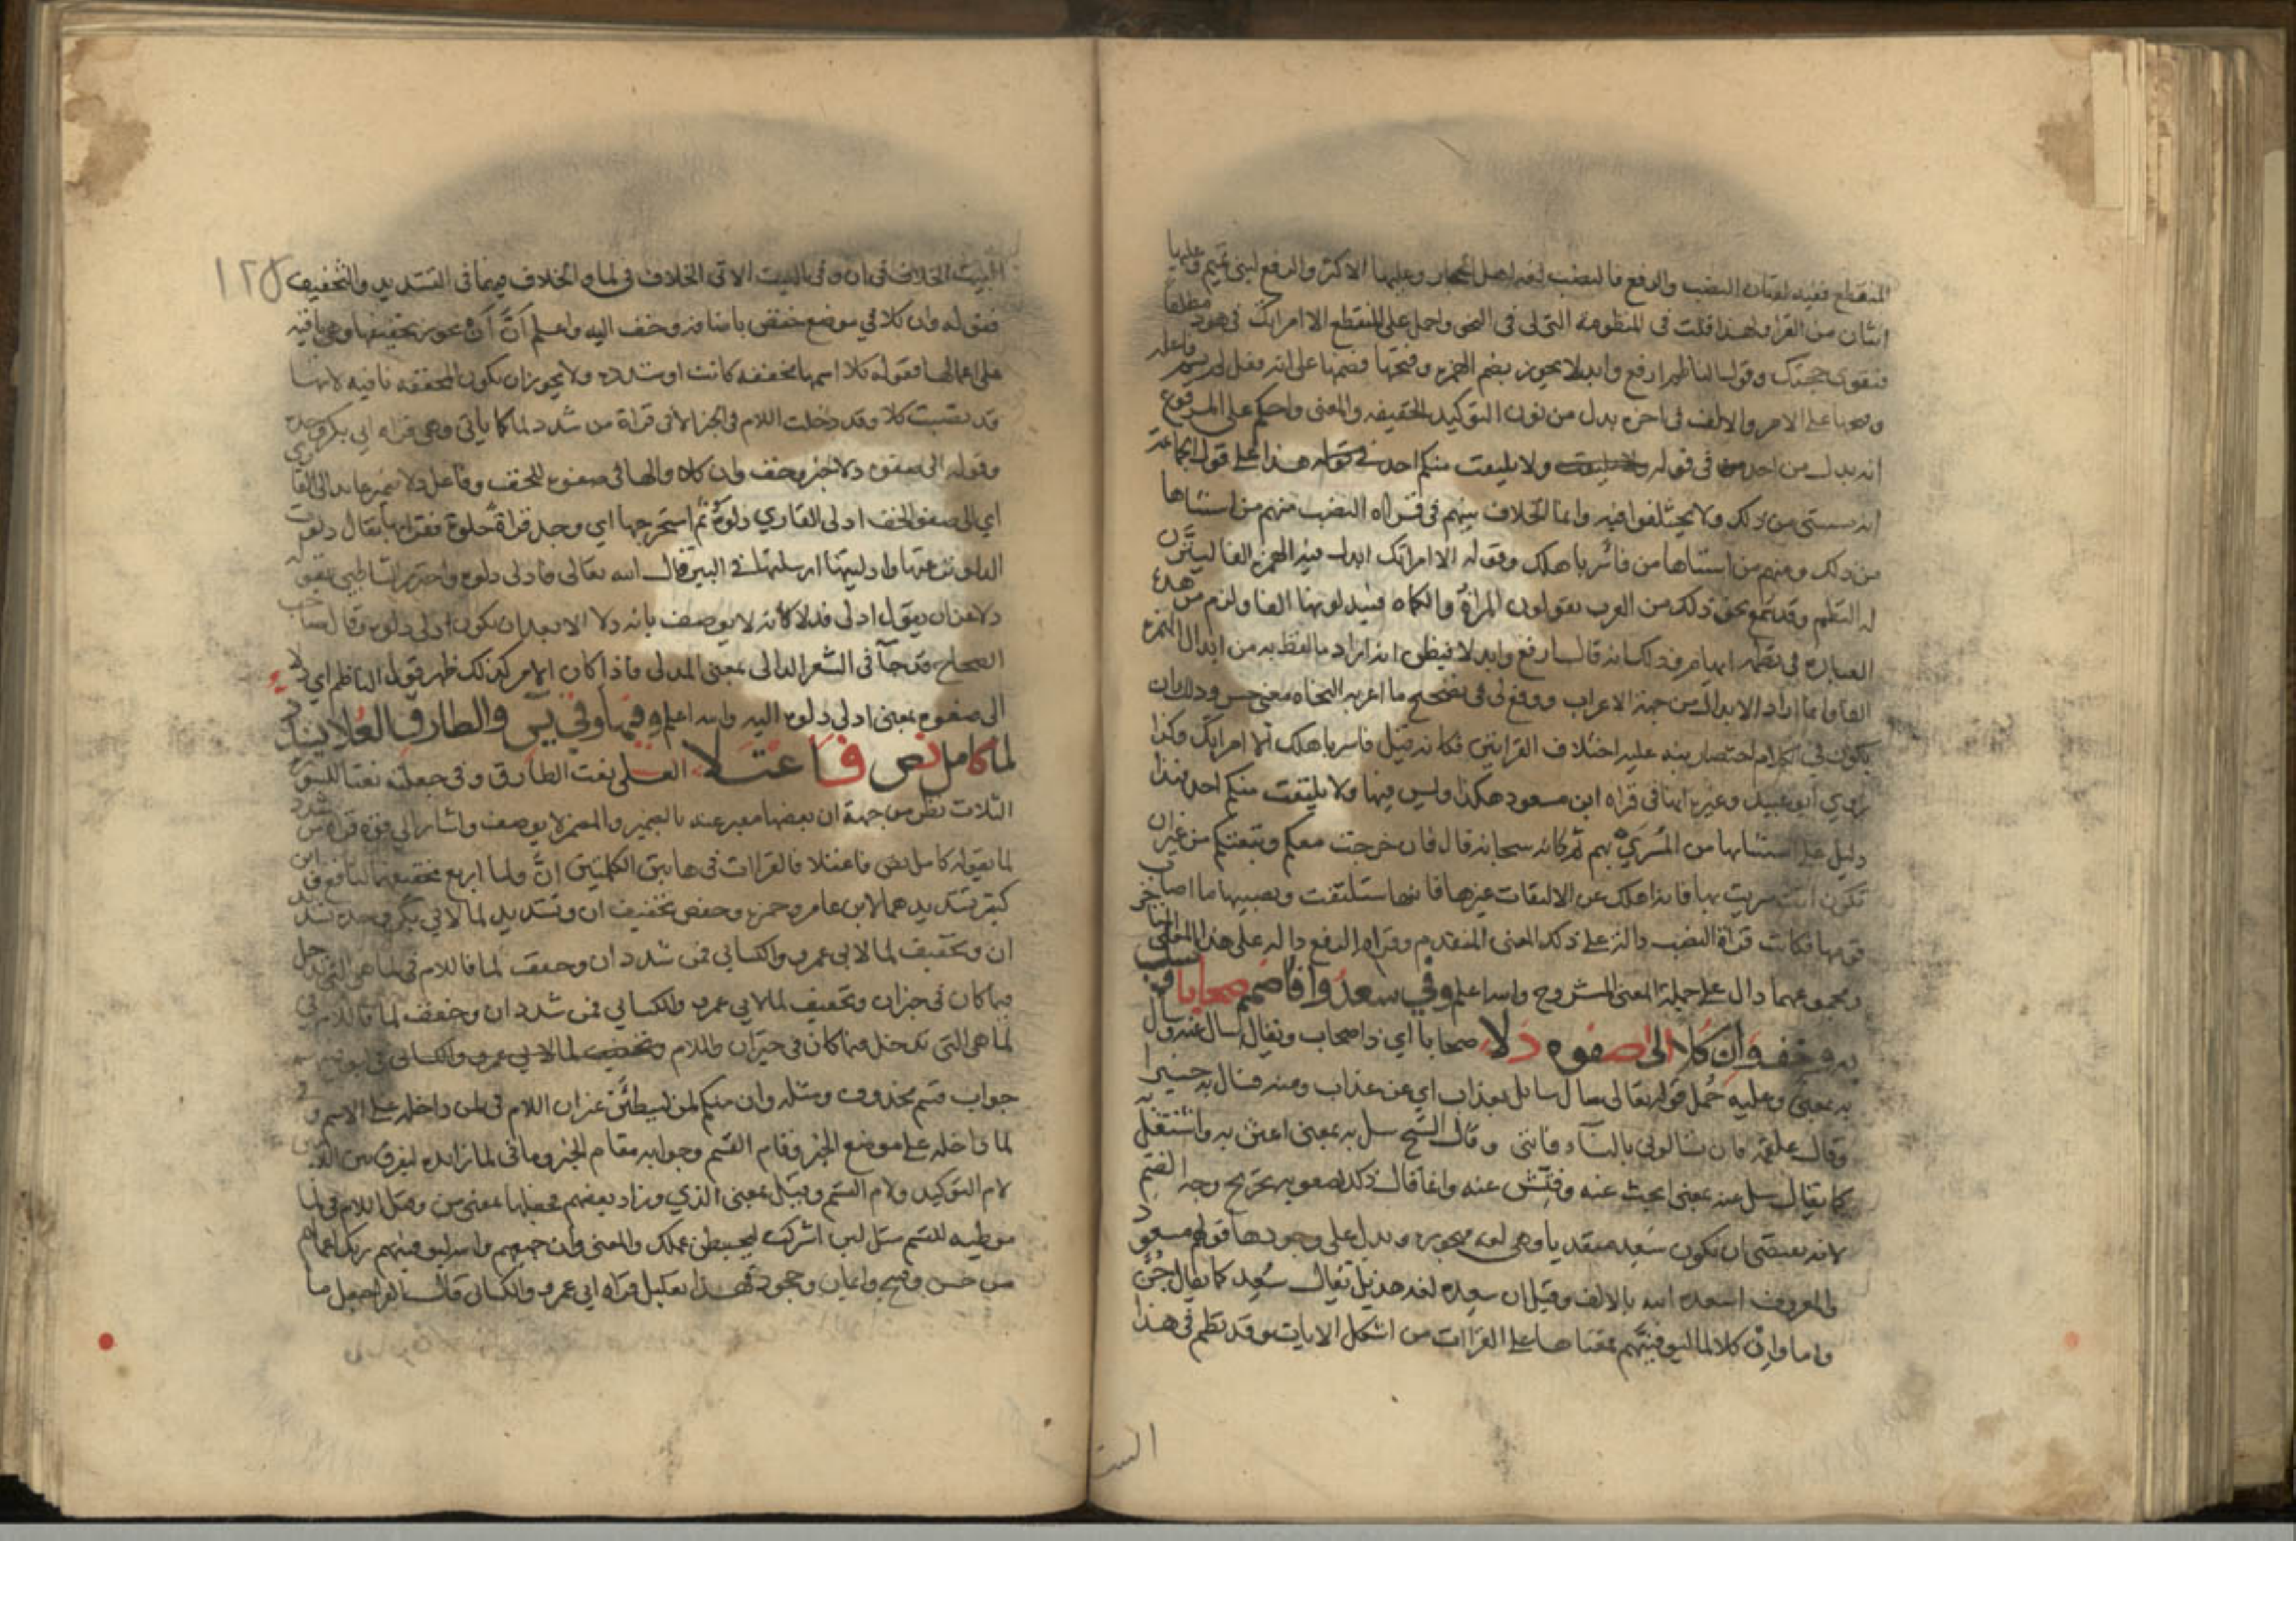 المنقطع ففيه لغتان النصب والرفع فالنصب لغة اهل الحجاز وعليها الاكثر والرفع لبني تميم وعليها
اثنان من القرا ولهذا قلت في المنظومة التي لي في النحو واحمل على المنقطع الا امراتك في هود مطلقا
فتقوى حجتك وقول الناظم ارفع وابدلا يجوز بضم الهمزة وفتحها فضمها على انه فعل لم يسم فاعله
وفتحها على الامر والالف في اخره بدل من نون التوكيد الخفيفة والمعنى واحكم على المرفوع
انه بدل من احد في قوله ولا يلتفت منكم احد هذا على قول الجماعة
انه مستثنى من ذلك ولا يختلفوا فيه وانما الخلاف بينهم في قراة النصب منهم من استثناها
من ذلك ومنهم من استثناها من فاسر باهلك وقوله الا امراتك ابدل فيه الهمزة الفا ليتزن
له النظم وقد سمع نحو ذلك من العرب يقولون المراة والكماة فيبدلونها الفا ولزم من هذه
العبارة في نظمه ايهام فذلك انه قال ارفع وابدلا فيظن انه اراد ما لفظ به من ابدال الهمزة
الفا وانما اراد الابدال من جهة الاعراب ووقع لي في تصحيح ما اعربه النحاة معنى حسن وذلك ان
يكون في الكلام اختصار ينبه عليه اختلاف القراتين فكانه قيل فاسر باهلك الا امراتك وكذا
روى ابو عبيد وغيره انها في قراة ابن مسعود هكذا وليس فيها ولا يلتفت منكم احد فهذا
دليل على استثنائها من المسري بهم ثم كانه سبحانه قال فان خرجت معكم وتبعتكم من غير ان
تكون انت سريت بها فانه اهلك عن الالتفات غيرها فانها ستلتفت ويصيبها ما اصاب
قومها فكانت قراة النصب دالة على ذلك المعنى المتقدم وقراة الرفع دالة على هذا المعنى
ومجموعهما دال على جملة المعنى المشروح والله اعلم وفي سعدوا فاضمم صحابا وسل
به وخف وان كلا الى صفوه دلا صحابا اي ذا اصحاب ويقال سال عنه وسال
به بمعنى وعليه حمل قوله تعالى سال سائل بعذاب اي عن عذاب ومنه فسال به خبيرا
وقال علقمة فان تسالوني بالنساء فانني وقال الشيخ سل به بمعنى اعتن به واشتغل به
كما يقال سل عنه بمعنى ابحث عنه وفتش عنه وانما قال ذلك لصعوبة تخريج وجه الضم
لانه يقتضي ان يكون سعد متعديا وهي لغة مهجورة ويدل على وجودها قولهم مسعود
والمعروف اسعده الله بالالف وقيل ان سعده لغة هذيل يقال سعد كما يقال جن
واما وان كلا لما ليوفينهم فمعناها على القراات من اشكل الايات وقد نظم في هذا
البيت
البيت الخلاف في ان وفي البيت الاتي الخلاف في لما والخلاف فيهما في التشديد والتخفيف
فقوله وان كلا في موضع خفض باضافة وخف اليه واعلم ان ان يجوز تخفيفها وهي باقية
على اعمالها فقوله كلا اسمها مخففة كانت او مشددة ولا يجوز ان تكون المخففة نافية لانها
قد نصبت كلا وقد دخلت اللام في الخبر الا في قراة من شدد لما كما ياتي وهي قراة ابي بكر وحده
وقوله الى صفوه دلا خبر وخف وان كلا والها في صفوه للخف وفاعل دلا ضمير عائد الى القاري
اي الى صفو الخف ادلى القاري دلوه ثم استخرجها اي وجد قراة حلوة فقرا بها يقال دلوت
الدلو نزعتها وادليتها ارسلتها في البير قال الله تعالى فادلى دلوه واحترز الشاطبي بقوله
دلا عن ان يقول ادلى فدلا كانه لا يوصف بانه دلا الا بعد ان يكون ادلى دلوه وقال صاحب
الصحاح قد جآ في الشعر الدالي بمعنى المدلي فاذا كان الامر كذلك ظهر قول الناظم اي دلا
الى صفوه بمعنى ادلى دلوه اليه والله اعلم وفيها وفي يس والطارق العلا يشدد
لما كامل نص فاعتلا العلى نعت الطارق وفي جعله نعتا للسور
الثلاث نظر من جهة ان بعضها معبر عنه بالضمير والمضمر لا يوصف واشار الى قوة قراة من شدد
لما بقوله كامل نص فاعتلا فالقراات في هاتين الكلمتين ان ولما اربع تخفيفهما لنافع وابن
كثير تشديدهما لابن عامر وحمزة وحفص تخفيف ان وتشديد لما لابي بكر وحده تشديد
ان وتخفيف لما لابي عمرو والكسائي فمن شدد ان وخفف لما فاللام في لما هي التي تدخل
فيما كان في خبر ان وتخفيف لما لابي عمرو والكسائي فمن شدد ان وخفف لما فاللام في
لما هي التي تدخل فيما كان في خبر ان واللام
جواب قسم محذوف ومثله وان منكم لمن ليبطئن غير ان اللام في لمن داخلة على الاسم وفي
لما داخلة على موضع الخبر وقام القسم وجوابه مقام الخبر وما في لما زائدة ليفرق بين
لام التوكيد ولام القسم وقيل بمعنى الذي وزاد بعضهم فجعلها بمعنى من وقيل اللام في لما
موطية للقسم مثل لئن اشركت ليحبطن عملك والمعنى وان جميعهم والله ليوفينهم ربك اعمالهم
من حسن وقبيح وايمان وجحود فهذا تعليل قراة ابي عمرو والكسائي قال الفرا جعل ما